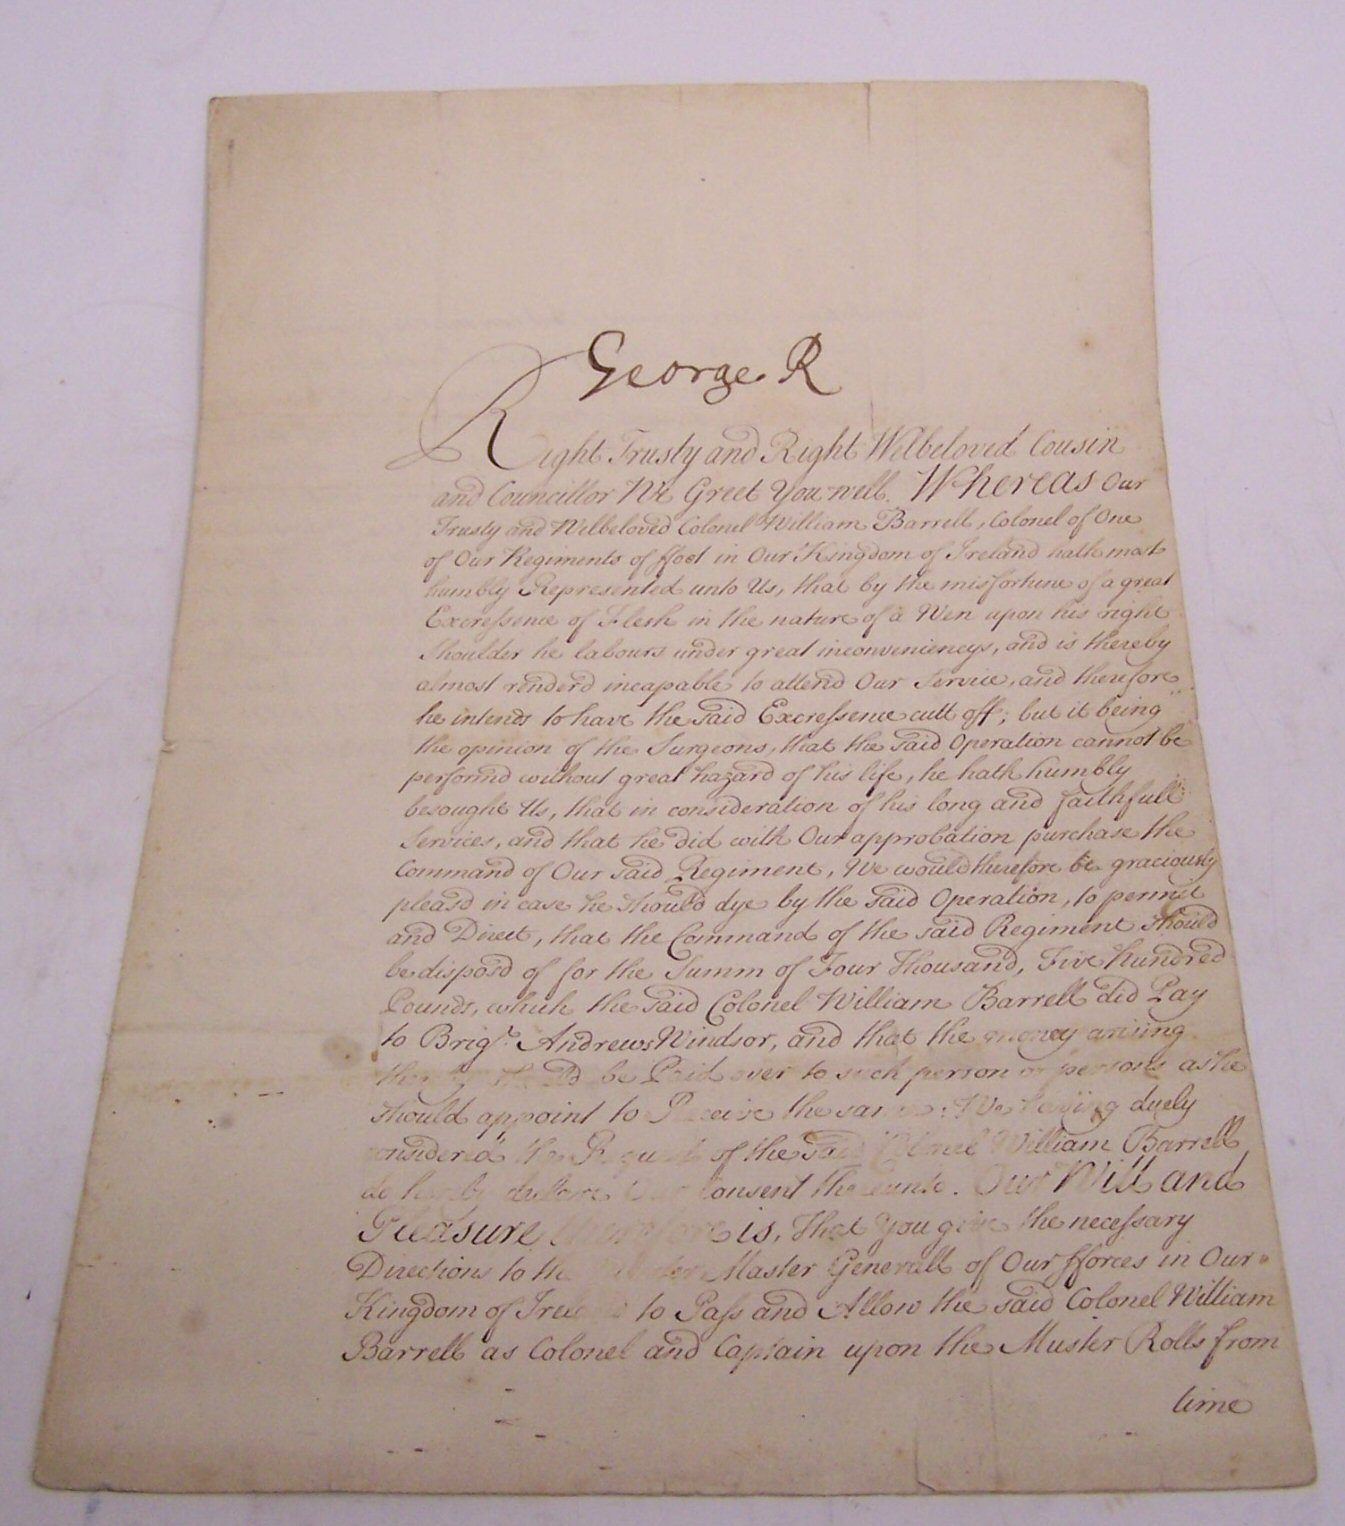 George R
Right Trusty and Right Welbeloved Cousin
and Councillor We Greet You well. Whereas Our
Trusty and Welbeloved Colonel William Barrell, Colonel of One
of Our Regiments of ffoot in Our Kingdom of Ireland hath most
humbly Represented unto Us, that by the misfortune of a great
Excressence of Flesh in the nature of a Wen upon his right
shoulder he labours under great inconveniencys, and is thereby
almost renderd incapable to attend Our Service, and therefore
he intends to have the said Excressence cutt off; but it being
the opinion of the Surgeons, that the said Operation cannot be
performd without great hazard of his life, he hath humbly
besought Us, that in consideration of his long and faithfull
Services, and that he did with Our approbation purchase the
Command of Our said Regiment, We would therefore be graciously
pleasd in case he should dye by the said Operation, to permit
and Direct, that the Command of the said Regiment should
be disposd of for the Summ of Four Thousand, Five hundred
Pounds, which the said Colonel William Barrell did Pay
to Brigr. Andrews Windsor, and that the money arising
be Paid over to such person or persons as he
should appoint to Receive the same: We having duely
considered the Request of the said Colonel William Barrell
do hereby declare Our Consent thereunto. Our Will and
Pleasure therefore is, That You give the necessary
Directions to the Muster Master Generall of Our fforces in Our
Kingdom of Ireland to Pass and Allow the said Colonel William
Barrell as Colonel and Captain upon the Muster Rolls from
time